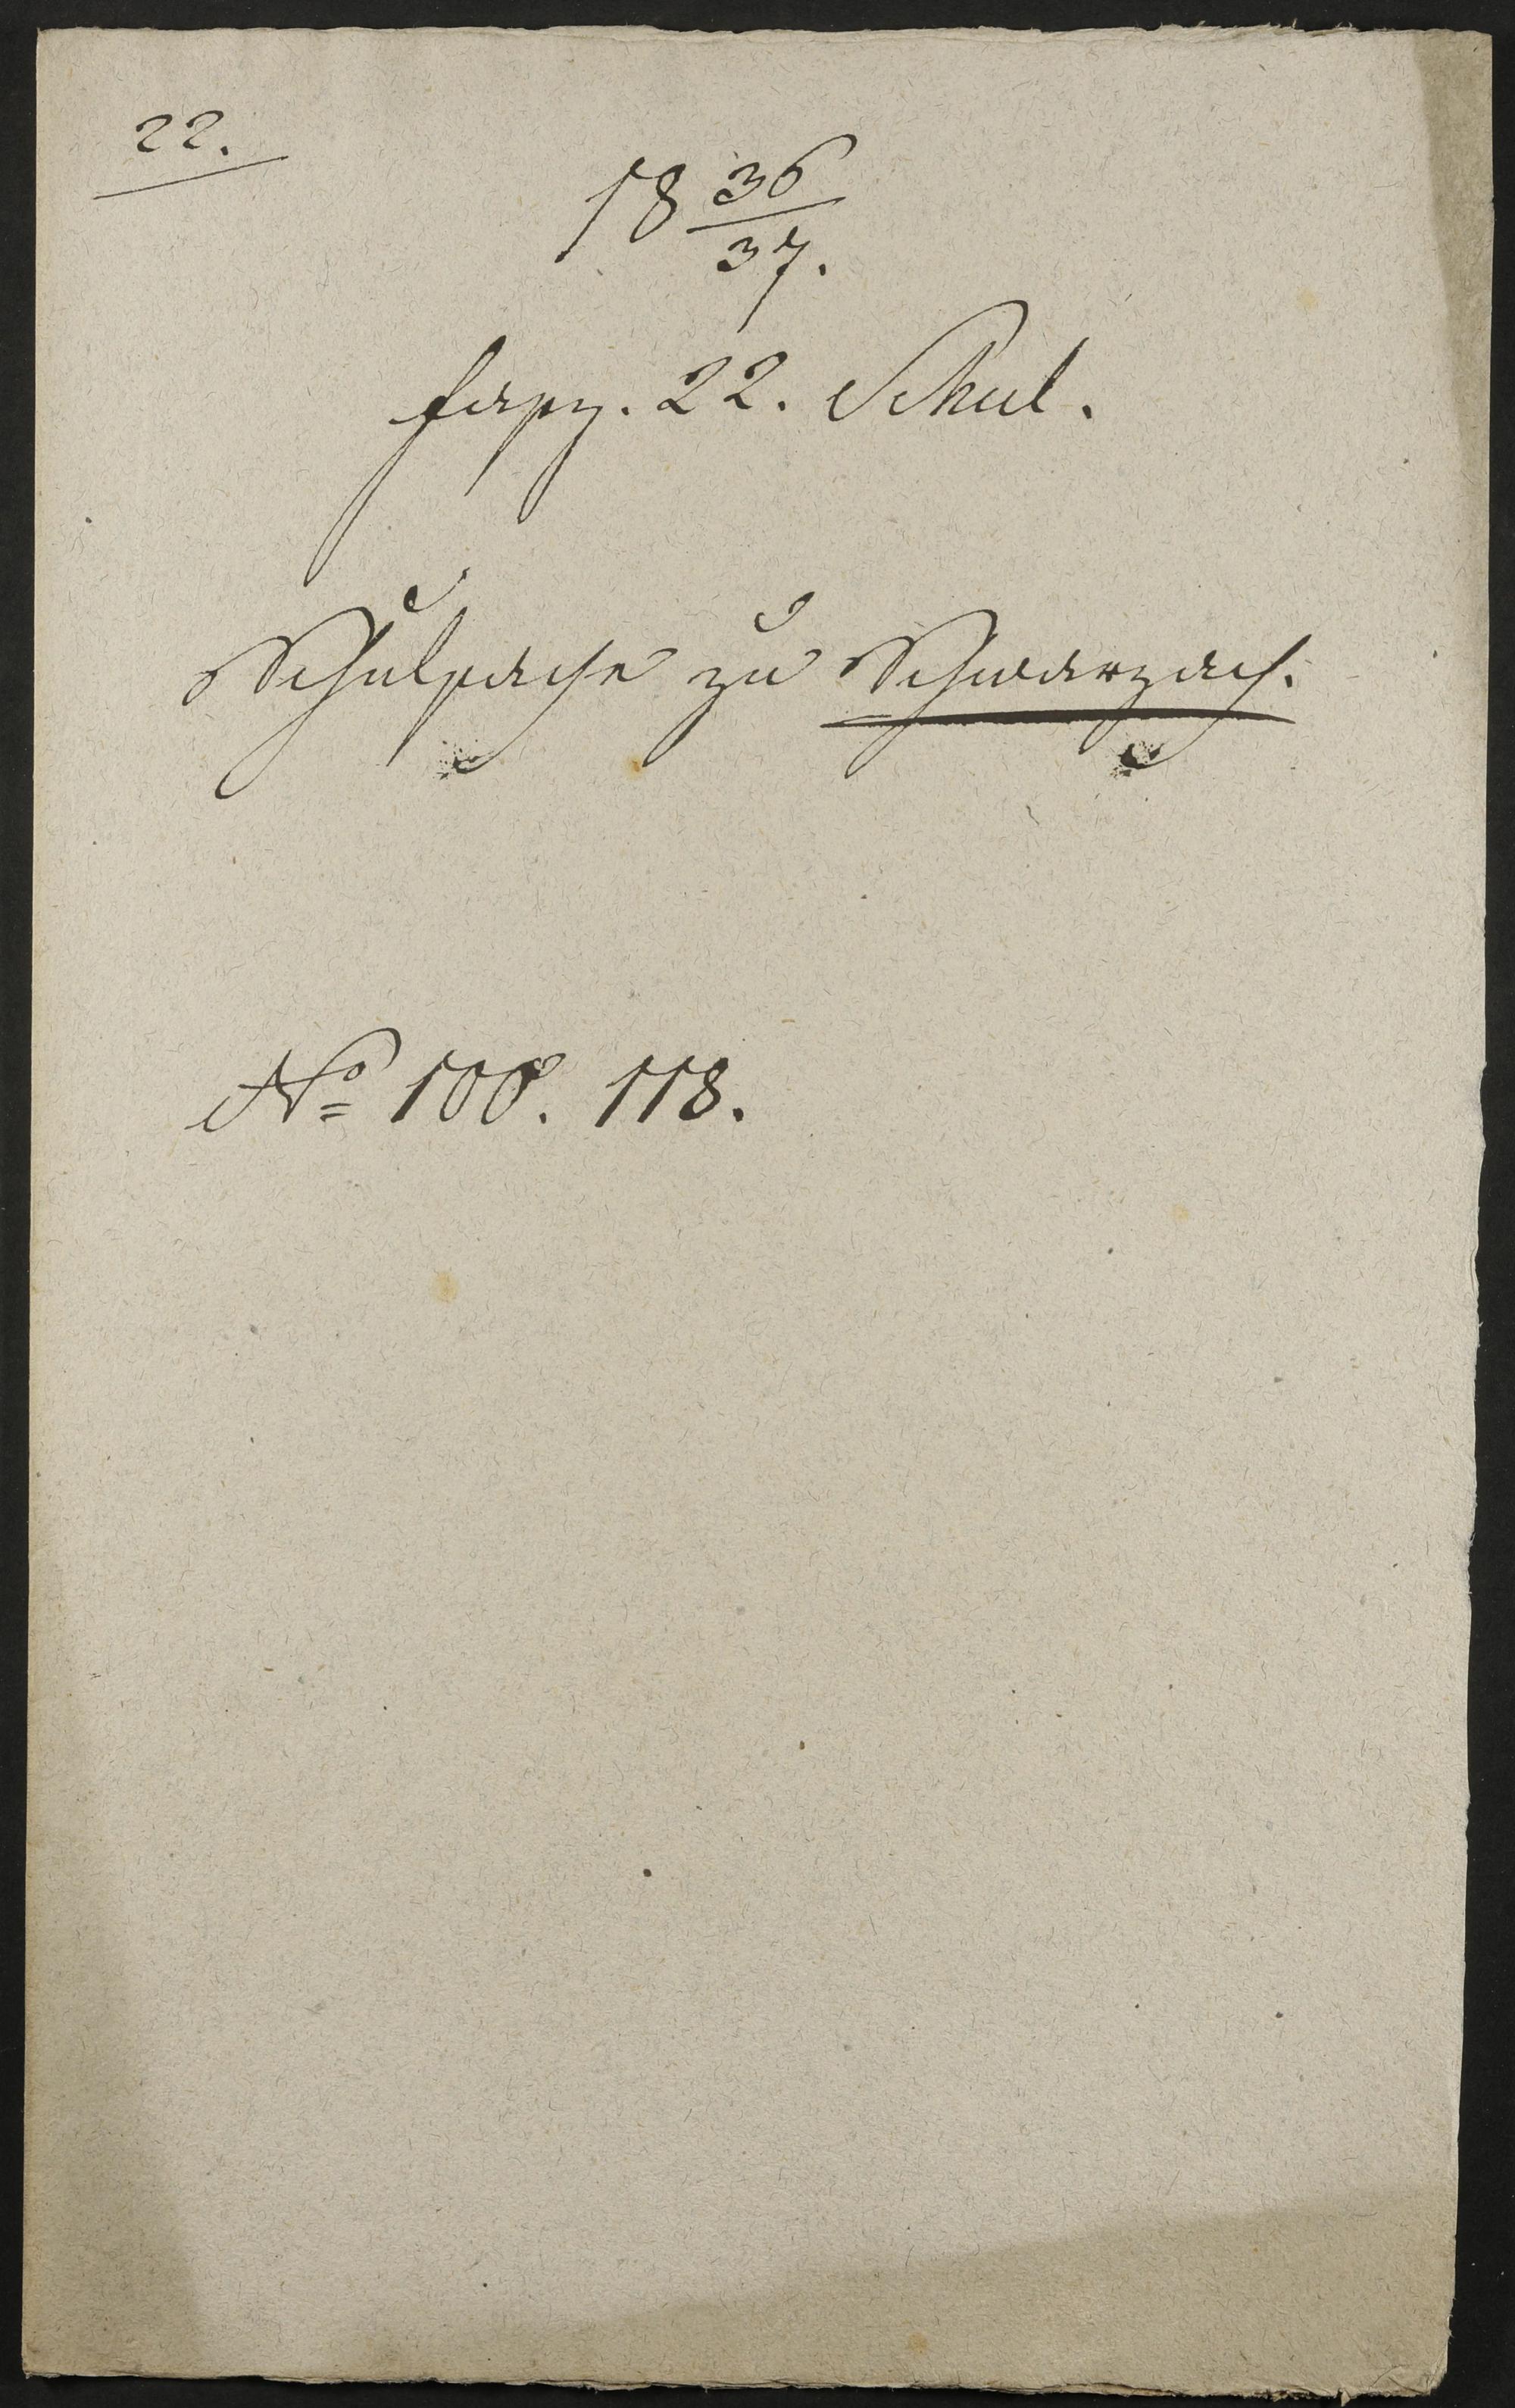 22.
18 36/37.
fasz. 22. Schul.
Schulsache zu Schwarzach.
No 100. 118.